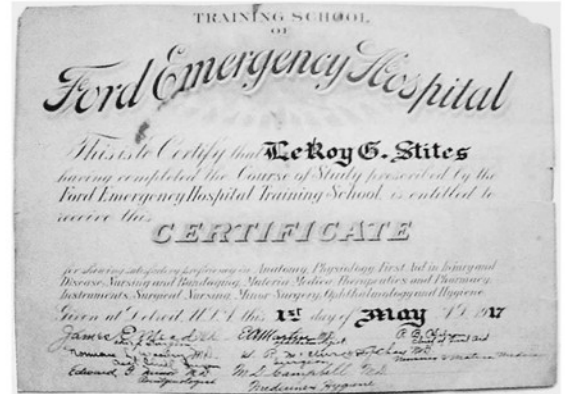 TRAINING SCHOOL
OF
Ford Emergency Hospital
This is to Certify that LeRoy G. Stites
having completed the Course of Study prescribed by the
Ford Emergency Hospital Training School, is entitled to
receive this
CERTIFICATE
for showing satisfactory proficiency in Anatomy, Physiology, First Aid in Injury and
Disease, Nursing and Bandaging, Materia Medica, Therapeutics and Pharmacy,
Instruments, Surgical Nursing, Minor Surgery, Ophthalmology and Hygiene.
Given at Detroit, U.S.A. this 1st day of May A.D. 1917
James E. M.D. E A Martin M.D.
Chief of First Aid
Norman M.D. W. R. M.D.
Surgeon
Edward G. Minor M.D. M. D. Campbell M.D.
Roentgenologist
Medicine & Hygiene